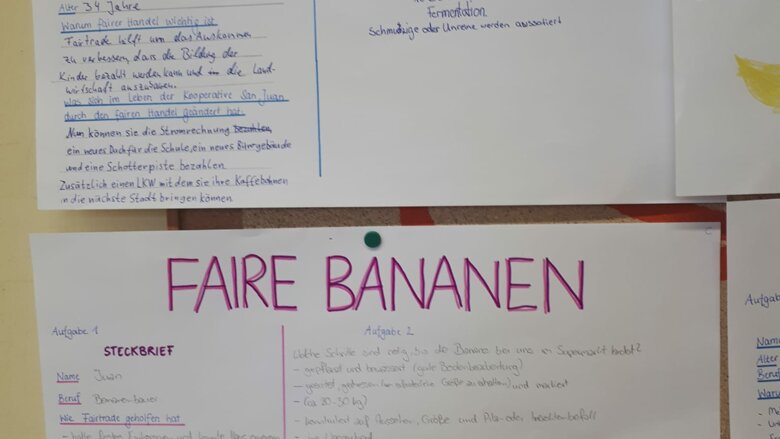 Alter 34 Jahre
Warum fairer Handel wichtig ist
Fairtrade hilft um das Auskommen
zu verbessern, dass die Bildung der
Kinder bezahlt werden kann und die Land-
wirtschaft auszubauen.
Was sich im Leben der Kooperative San Juan
durch den fairen Handel geändert hat
Nun können sie die Stromrechnung bezahlen,
ein neues Dach für die Schule, ein neues Bürogebäude
und eine Schotterpiste bezahlen
Zusätzlich einen LKW mit dem sie ihre Kaffebohnen
in die nächste Stadt bringen können
Fermentation
Schmutzige oder Unreine werden aussortiert
FAIRE BANANEN
C
Aufgabe 1
STECKBRIEF
Name Juan
Beruf Bananenbauer
Wie Fairtrade geholfen hat
Aufgabe 2
Welche Schritte sind nötig, bis die Banane bei uns im Supermarkt landet?
- gepflanzt und bewässert (gute Bodenbearbeitung)
- geerntet, und sortiert
- (ca 20-30 kg)
- kontrolliert auf Aussehen, Größe und Pilz- oder Insektenbefall
Aufgab
Name
Alter
Beruf
Waru